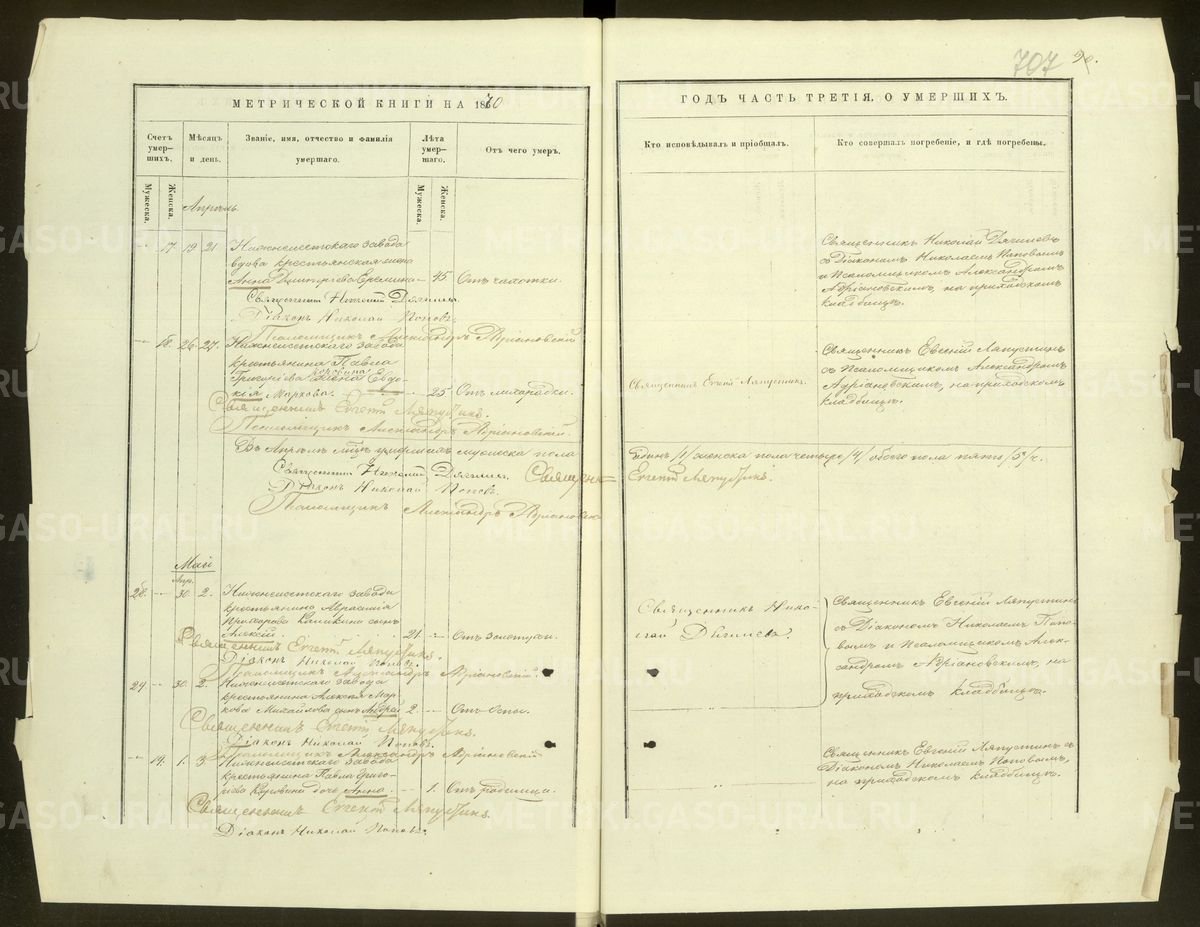 707
МЕТРИЧЕСКОЙ КНИГИ НА 1870
ГОДЪ ЧАСТЬ ТРЕТІЯ, О УМЕРШИХЪ.
Счетъ умер-шихъ.
Мѣсяцъ и день.
Званіе, имя, отчество и фамилія умершаго.
Лѣта умер-шаго.
Отъ чего умеръ.
Кто исповѣдывалъ и пріобщалъ.
Кто совершалъ погребеніе, и гдѣ погребены.
Мужеска.
Женска.
Мужеска.
Женска.
Апрѣль
17 19 21 Нижнеисетскаго завода
вдова крестьянская жена
Анна Дмитріева 45. Отъ чахотки.
Священникъ Николай
Діаконъ Николай Поповъ.
Псаломщикъ Александръ Адріановскій
Священникъ Николай
съ Діакономъ Николаемъ Поповымъ
и Псаломщикомъ Александромъ
Адріановскимъ, на приходскомъ
кладбищѣ.
18. 26. 27. Нижнеисетскаго завода
крестьянина Павла
Григорьева жена Евдо-
кія Маркова. 25 Отъ лихорадки.
Священникъ Евгеній Ляпустинъ.
Псаломщикъ Александръ Адріановскій.
Священникъ Евгеній Ляпустинъ.
Священникъ Евгеній Ляпустинъ
съ Псаломщикомъ Александромъ
Адріановскимъ, на приходскомъ
кладбищѣ.
Въ Апрѣлѣ мѣсяцѣ умершихъ мужеска пола
Одинъ /1/ женска пола четыре /4/ обоего пола пять /5/ ч.
Священникъ Николай
Діаконъ Николай Поповъ.
Священникъ Евгеній Ляпустинъ.
Псаломщикъ Александръ Адріановскій
Май
Апр.
28. 30. 2. Нижнеисетскаго завода
крестьянина
сынъ
Алексій. 21. Отъ золотухи.
Священникъ Евгеній Ляпустинъ.
Діаконъ Николай Поповъ.
Псаломщикъ Александръ Адріановскій.
Священникъ Нико-
лай
Священникъ Евгеній Ляпустинъ
съ Діакономъ Николаемъ Попо-
вымъ и Псаломщикомъ Алек-
сандромъ Адріановскимъ, на
приходскомъ кладбищѣ.
30. 2. Нижнеисетскаго завода
крестьянина Алексѣя Мар-
кова Михайлова сынъ Андрей 2. Отъ Оспы.
Священникъ Евгеній Ляпустинъ.
Діаконъ Николай Поповъ.
Псаломщикъ Александръ Адріановскій
19. 1. 3 Нижнеисетскаго завода
крестьянина Павла Григо-
рьева Коровина дочь Анна. 1. Отъ родимца.
Священникъ Евгеній Ляпустинъ.
Діаконъ Николай Поповъ.
Священникъ Евгеній Ляпустинъ съ
Діакономъ Николаемъ Поповымъ,
на приходскомъ кладбищѣ.
METRIKI.GASO-URAL.RU